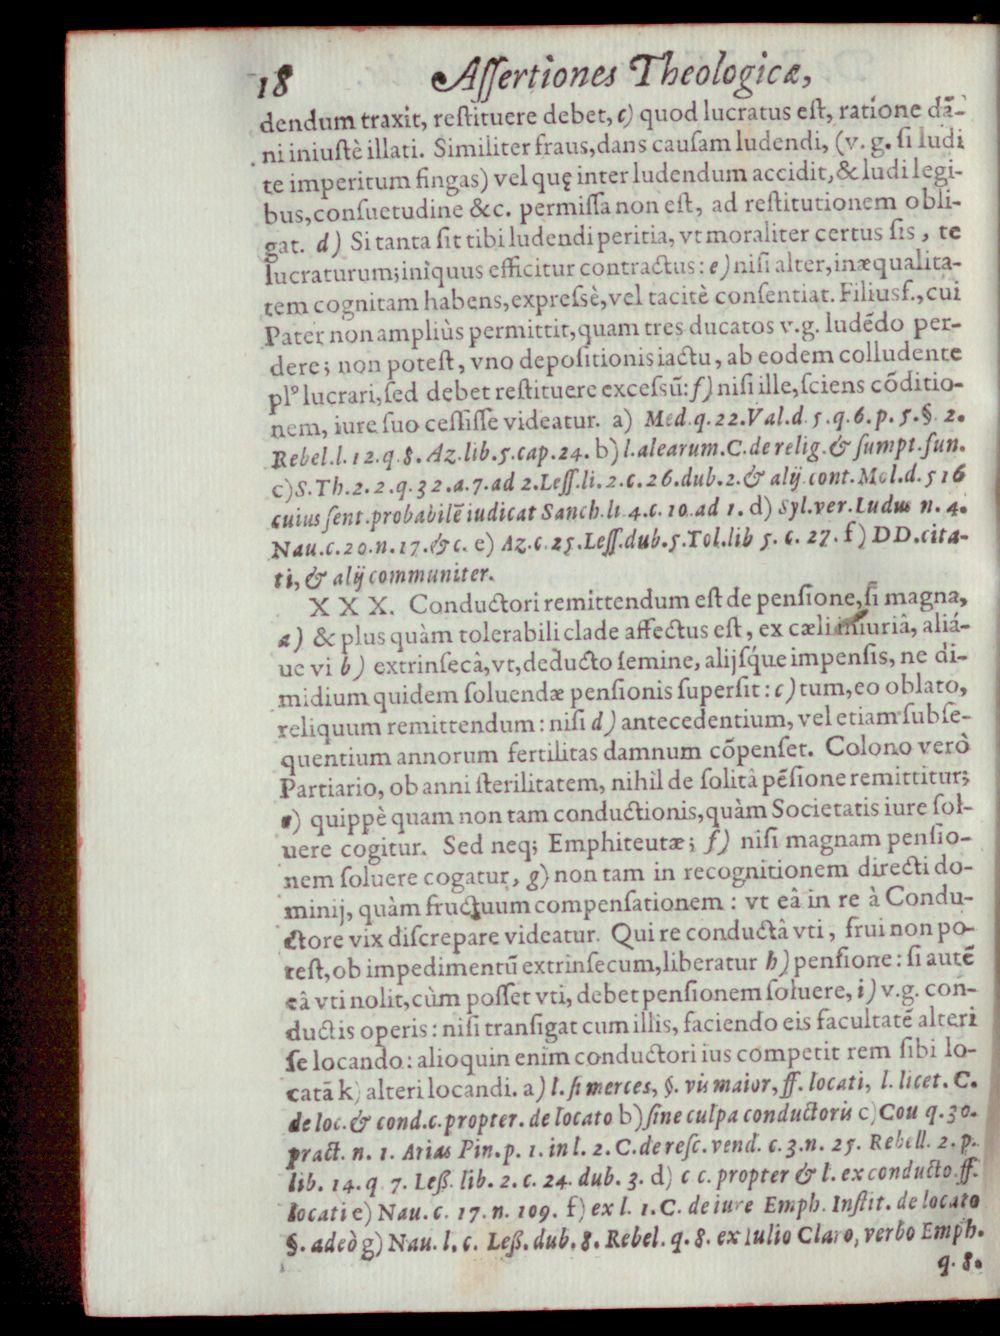 18 Aſſertiones Theologicæ,
dendum traxit, reſtituere debet, c) quod lucratus eſt, ratione dã-
ni iniuſtè illati. Similiter fraus, dans cauſam ludendi, (v. g. ſi ludi
te imperitum fingas) vel quę inter ludendum accidit, & ludi legi-
bus, conſuetudine &c. permiſſa non eſt, ad reſtitutionem obli-
gat. d) Si tanta ſit tibi ludendi peritia, vt moraliter certus ſis, te
lucraturum; iniquus efficitur contractus: e) niſi alter, inæqualita-
tem cognitam habens, expreſsè, vel tacitè conſentiat. Filiusf., cui
Pater non ampliùs permittit, quam tres ducatos v.g. ludẽdo per-
dere; non poteſt, vno depoſitionis iactu, ab eodem colludente
plº lucrari, ſed debet reſtituere exceſsũ: f) niſi ille, ſciens cõditio-
nem, iure ſuo ceſſiſſe videatur. a) Med. q. 22. Val. d. 5. q. 6. p. 5. §. 2.
Rebel. l. 12. q. 8. Az. lib. 5. cap. 24. b) l. alearum. C. de relig. & ſumpt. fun.
c) S. Th. 2. 2. q. 32. a. 7. ad 2. Leſſ. li. 2. c. 26. dub. 2. & alij cont. Mol. d. 516
cuius ſent. probabilẽ iudicat Sanch. li 4. c. 10. ad 1. d) Syl. ver. Ludus n. 4.
Nau. c. 20. n. 17. & c. e) Az. c. 25. Leſſ. dub. 5. Tol. lib 5. c. 27. f) DD. cita-
ti, & alij communiter.
XXX. Conductori remittendum eſt de penſione, ſi magna,
a) & plus quàm tolerabili clade affectus eſt, ex cæli iniuriâ, aliá-
ue vi b) extrinſecâ, vt, deducto ſemine, alijſq́ue impenſis, ne di-
midium quidem ſoluendæ penſionis ſuperſit: c) tum, eo oblato,
reliquum remittendum: niſi d) antecedentium, vel etiam ſubſe-
quentium annorum fertilitas damnum cõpenſet. Colono verò
Partiario, ob anni ſterilitatem, nihil de ſolitâ pẽſione remittitur;
e) quippè quam non tam conductionis, quàm Societatis iure ſol-
uere cogitur. Sed neq; Emphiteutæ; f) niſi magnam penſio-
nem ſoluere cogatur, g) non tam in recognitionem directi do-
minij, quàm fructuum compenſationem: vt eâ in re à Condu-
ctore vix diſcrepare videatur. Qui re conductâ vti, frui non po-
teſt, ob impedimentũ extrinſecum, liberatur h) penſione: ſi autẽ
eâ vti nolit, cùm poſſet vti, debet penſionem ſoluere, i) v.g. con-
ductis operis: niſi tranſigat cum illis, faciendo eis facultatẽ alteri
ſe locando: alioquin enim conductori ius competit rem ſibi lo-
catã k) alteri locandi. a) l. ſi merces, §. vis maior, ff. locati, l. licet. C.
de loc. & cond. c. propter. de locato b) ſine culpa conductoris c) Cou q. 30.
pract. n. 1. Arias Pin. p. 1. in l. 2. C. de reſc. vend. c. 3. n. 25. Rebell. 2. p.
lib. 14. q 7. Leß. lib. 2. c. 24. dub. 3. d) c c. propter & l. ex conducto. ff.
locati e) Nau. c. 17. n. 109. f) ex l. 1. C. de iure Emph. Inſtit. de locato
§. adeò g) Nau. l. c. Leß. dub. 8. Rebel. q. 8. ex Iulio Claro, verbo Emph.
q. 8.